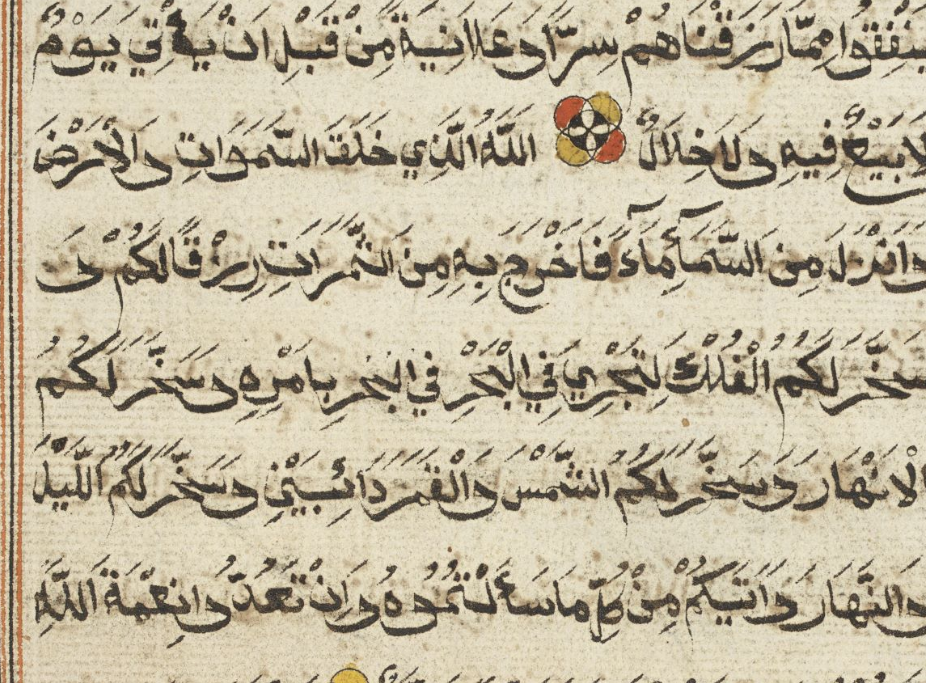 ينفقوا مِمَّا رَزَقْنَاهُمْ سِرًّا وَعَلَانِيَةً مِنْ قَبْلِ أَنْ يَأْتِيَ يَوْمٌ
لَا بَيْعٌ فِيهِ وَلَا خِلَالٌ اللَّهُ الَّذِي خَلَقَ السَّمَوَاتِ وَالْأَرْضَ
وَأَنْزَلَ مِنَ السَّمَآءِ مَآءً فَأَخْرَجَ بِهِ مِنَ الثَّمَرَاتِ رِزْقًا لَكُمْ وَ
سَخَّرَ لَكُمُ الْفُلْكَ لِتَجْرِيَ فِي الْبَحْرِ فِي الْبَحْرِ بِأَمْرِهِ وَسَخَّرَ لَكُمُ
الْأَنْهَارَ وَسَخَّرَ لَكُمُ الشَّمْسَ وَالْقَمَرَ دَائِبَيْنِ وَسَخَّرَ لَكُمُ اللَّيْلَ
وَالنَّهَارَ وَآتَيكُمْ مِنْ كُلِّ مَا سَأَلْتُمُوهُ وَإِنْ تَعُدُّوا نِعْمَةَ اللَّهِ